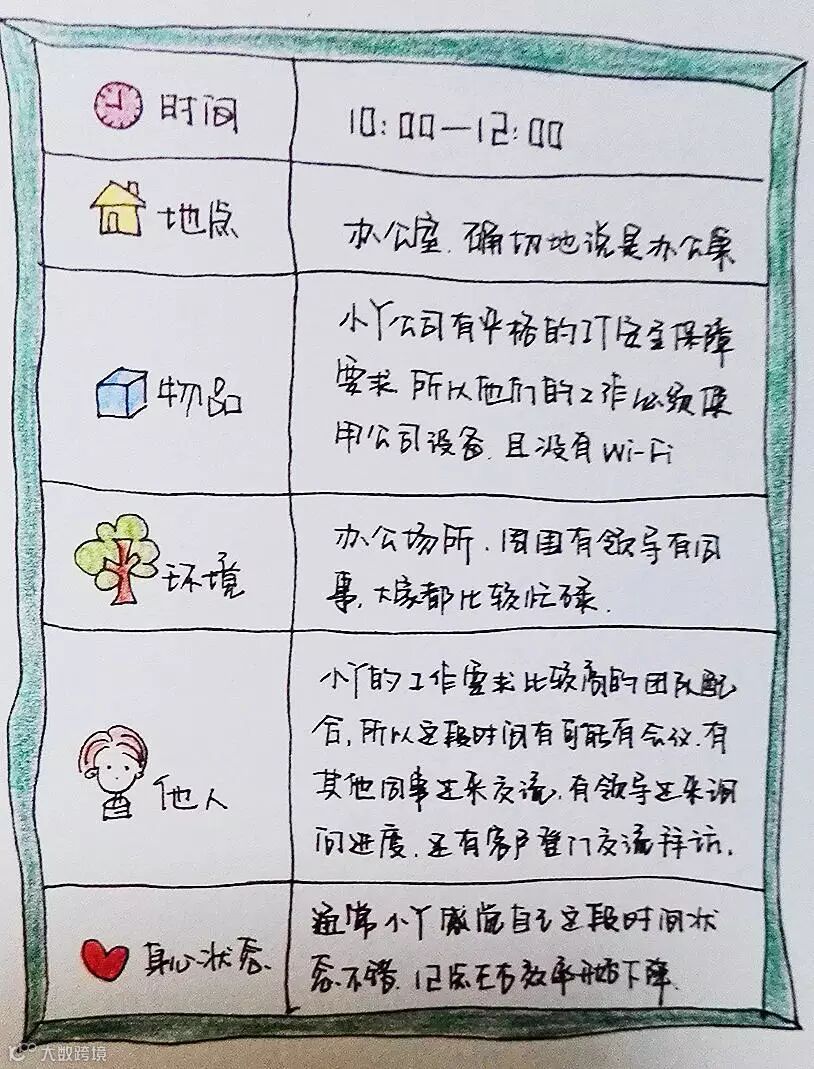 时间
10:00—12:00
地点
办公室.确切地说是办公桌
物品
小丫公司有严格的IT安全保障
要求.所以他们的工作必须使
用公司设备.且没有Wi-Fi
环境
办公场所.周围有领导有同
事,大家都比较忙碌.
他人
小丫的工作要求比较高的团队配
合,所以这段时间有可能有会议.有
其他同事过来交流.有领导过来询
问进度.还有客户登门交流拜访.
身心状态
通常小丫感觉自己这段时间状
态不错.12点左右效率开始下降.
大数跨境